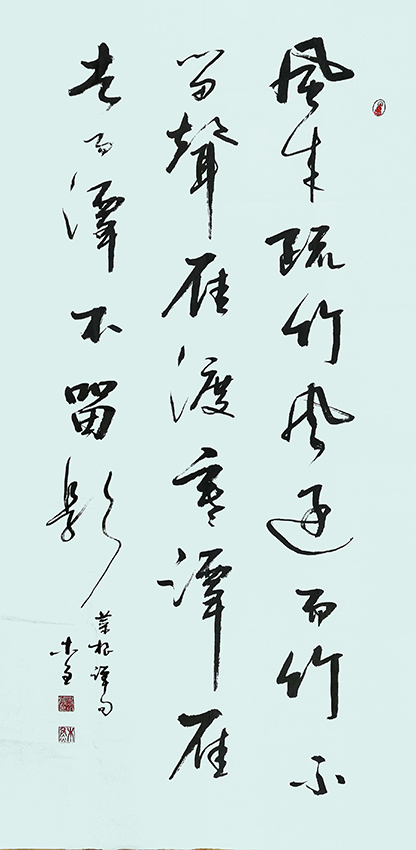 風來疏竹風過而竹不
留聲雁渡寒潭雁
去而潭不留影
菜根譚句